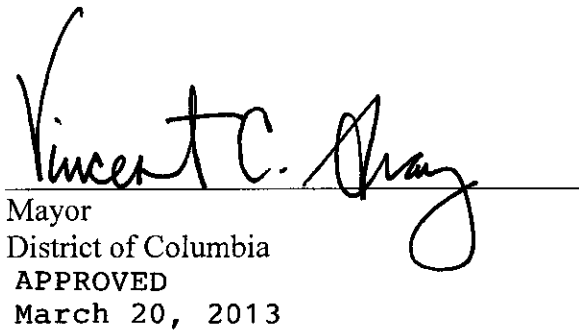 Vincent C. Gray
Mayor
District of Columbia
APPROVED
March 20, 2013